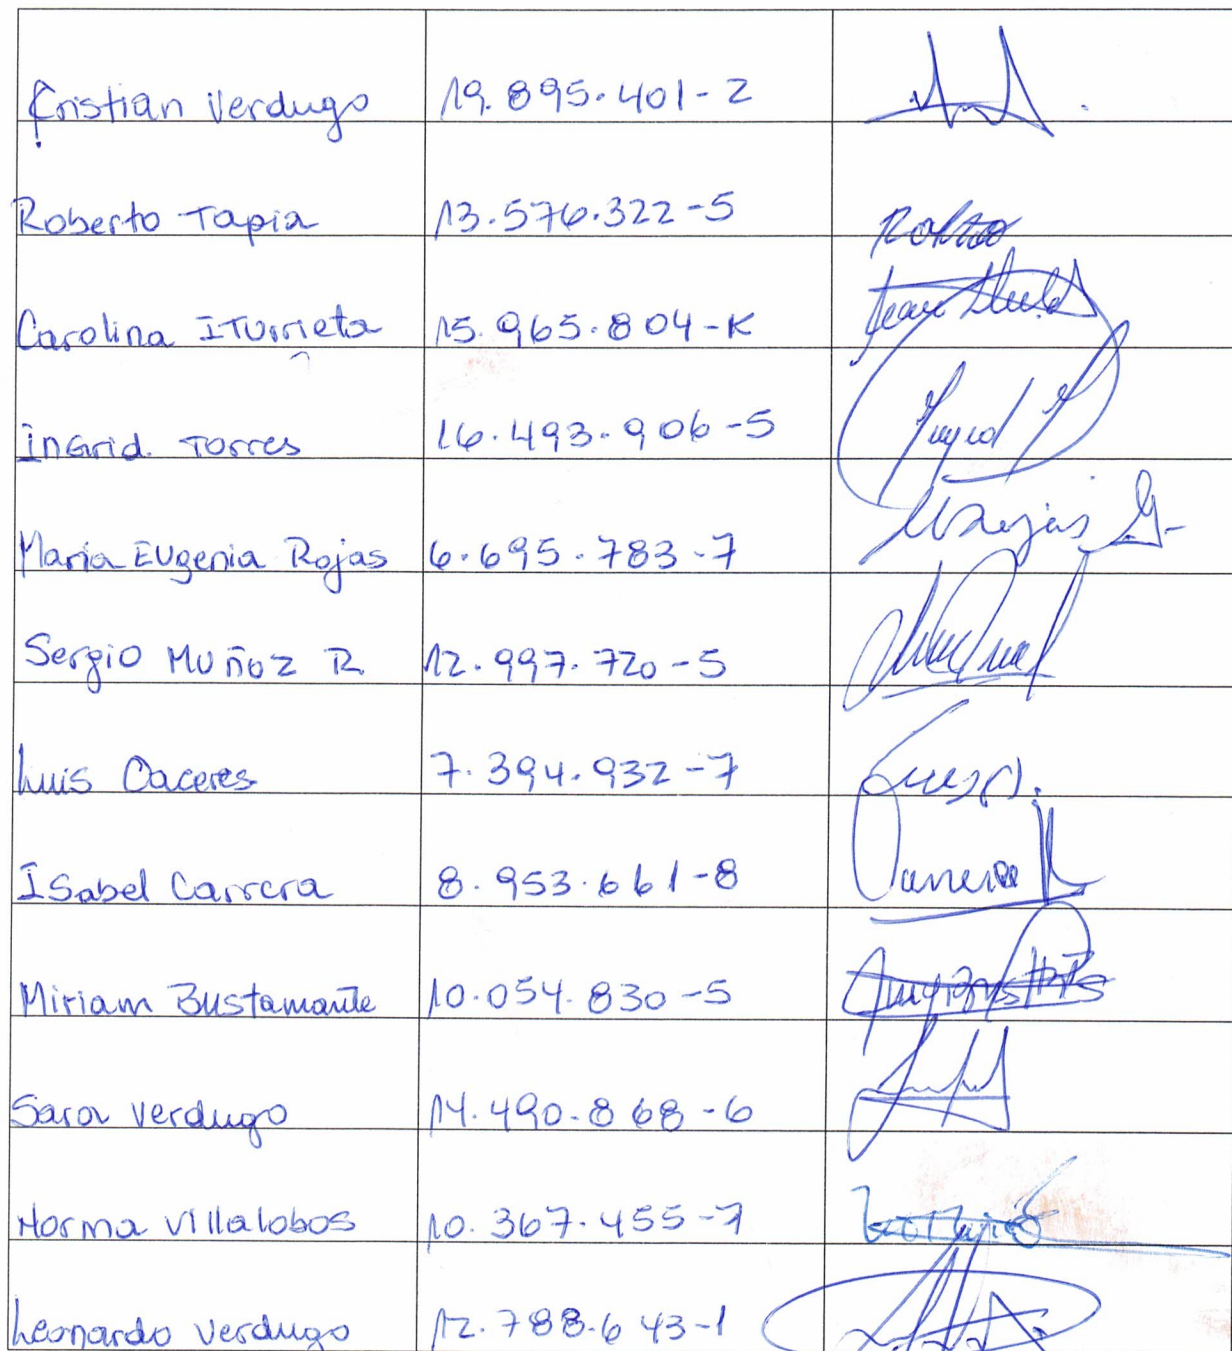 Cristian Verdugo 19.895.401-2
Roberto Tapia 13.576.322-5
Carolina ITurrieta 15.965.804-K
Ingrid. Torres 16.493.906-5
Maria Eugenia Rojas 6.695.783-7
Sergio Muñoz R 12.997.720-5
Luis Caceres 7.394.932-7
Isabel Carrera 8.953.661-8
Miriam Bustamante 10.054.830-5
Sara Verdugo 14.490.868-6
Norma Villalobos 10.367.455-7
Leonardo Verdugo 12.788.643-1